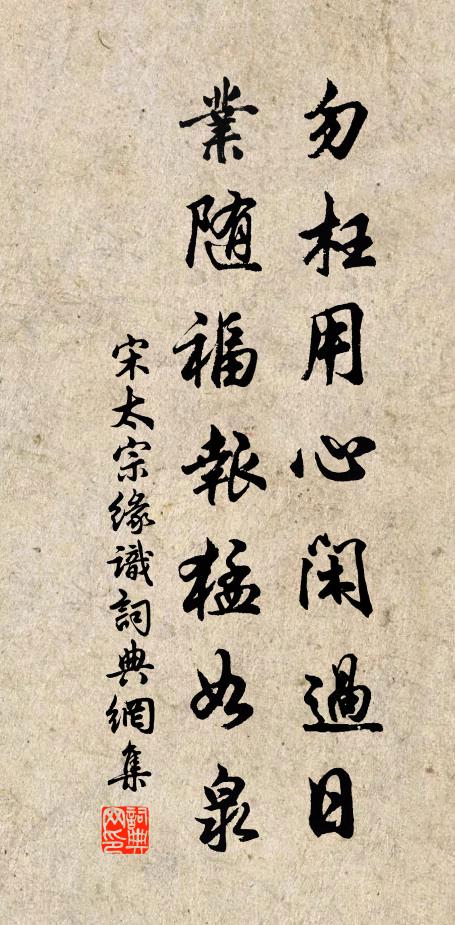 勿枉用心閑過日
業随福報猛如泉
宋太宗緣識詞典網集
詞典網印